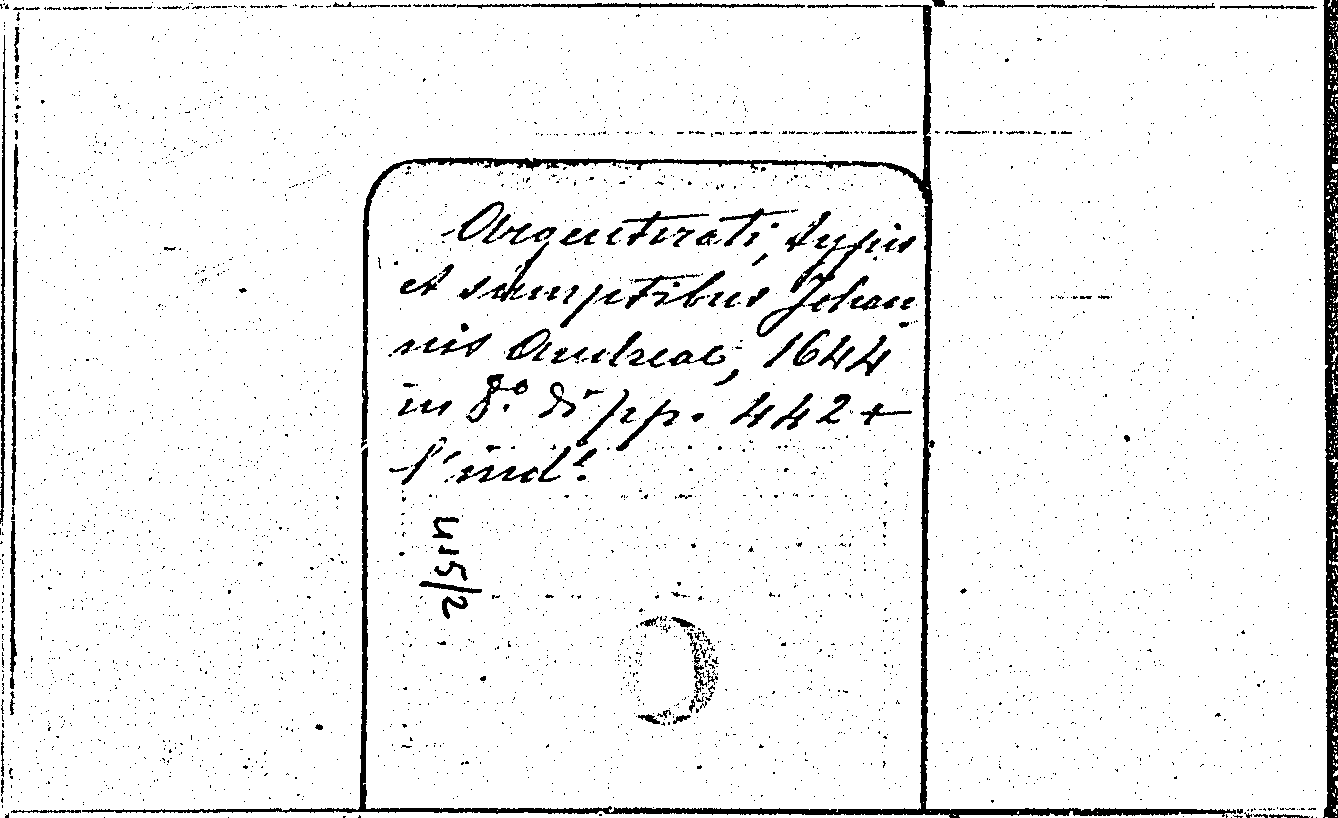 Argentorati, typis
et sumptibus Johan
nis Andreae, 1644
in 8.° di pp. 442 +
l'ind.e
u.5/2